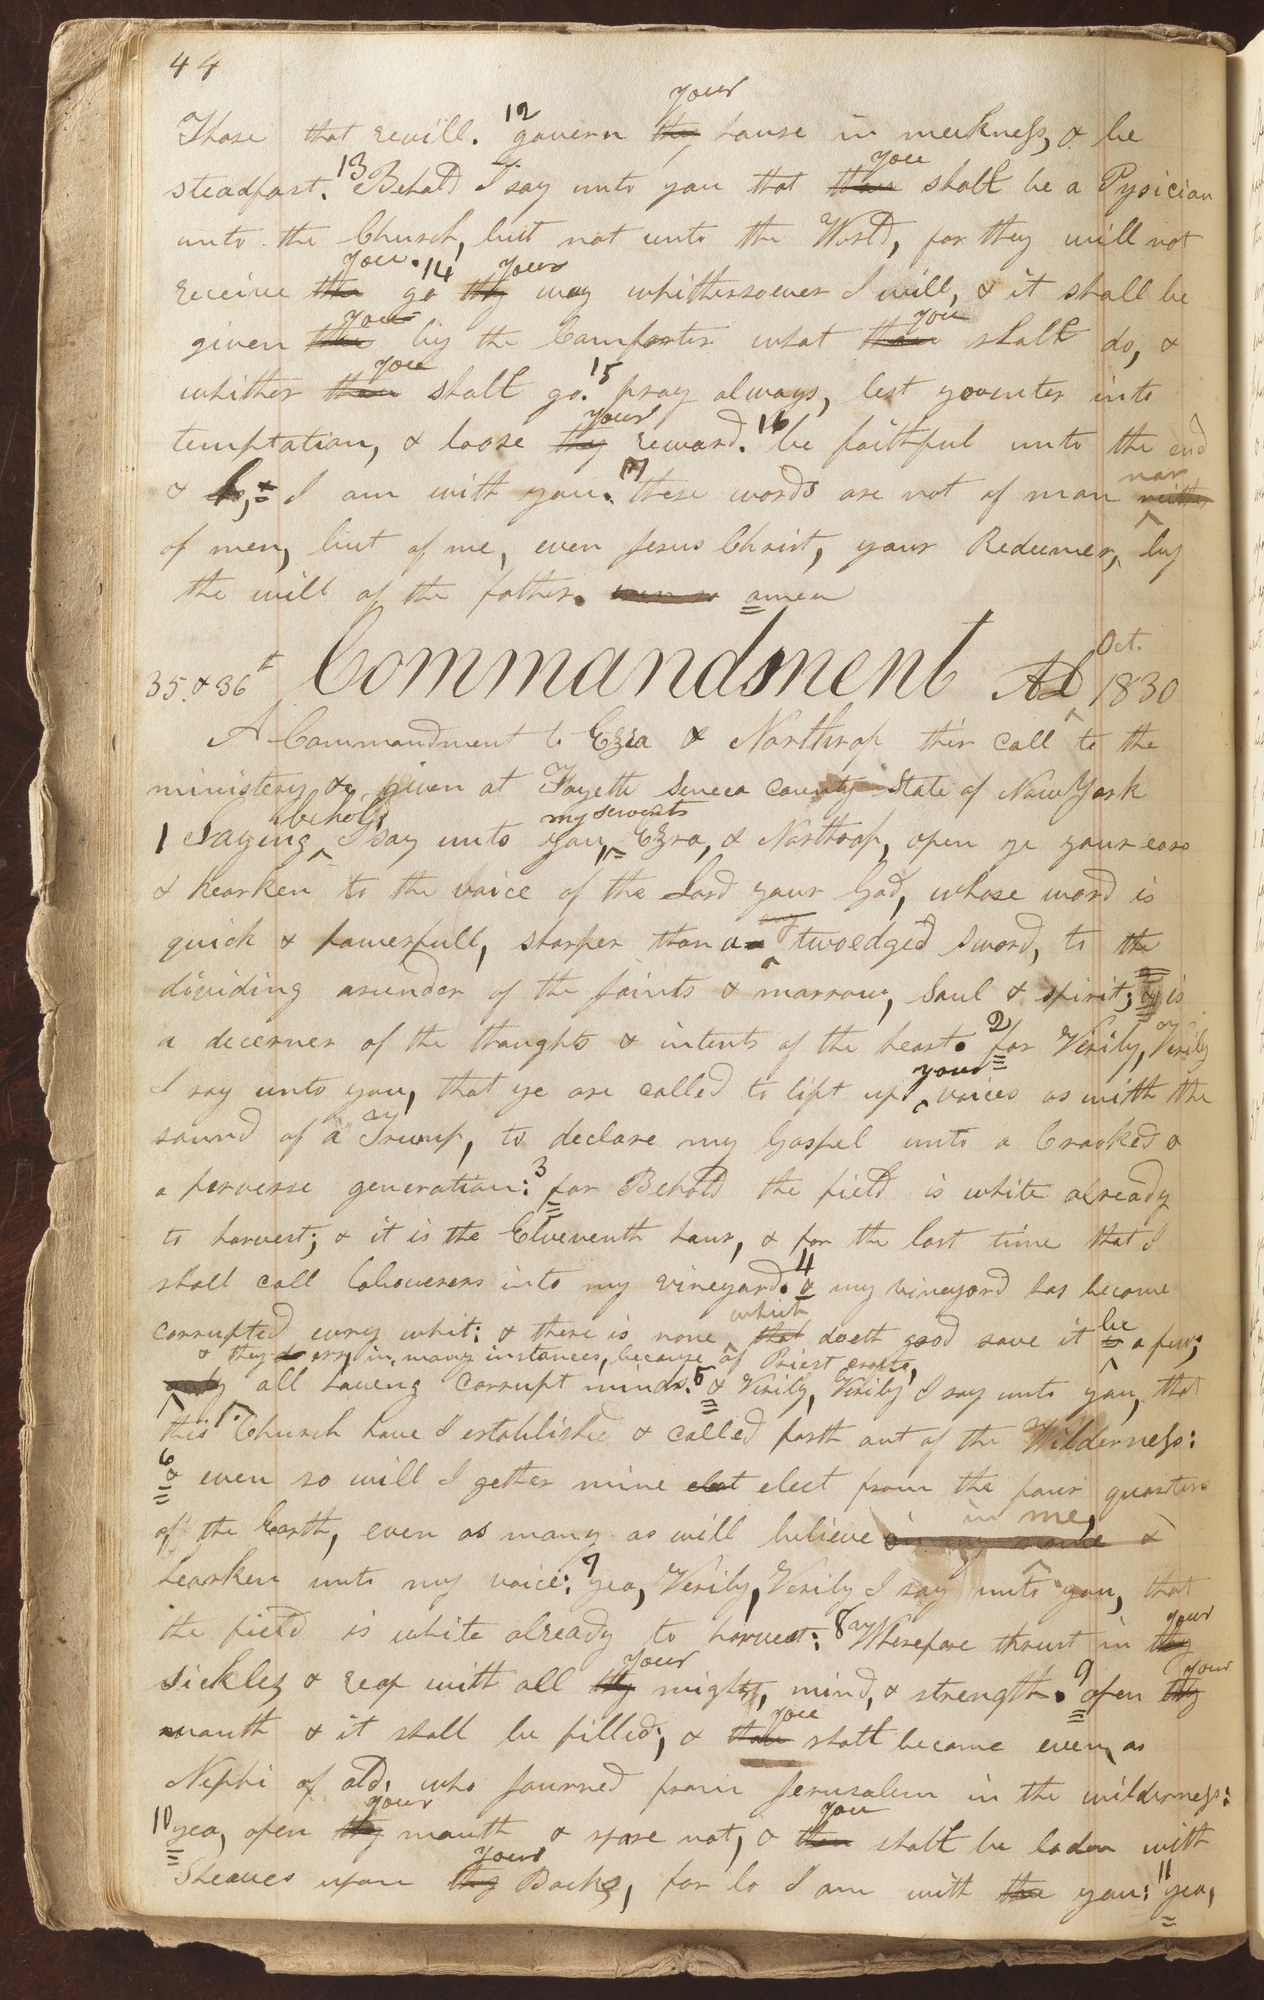 44
Those that revill. 12 govern thy your house in meekness, & be
steadfast. 13 Behold I say unto you that thou you shalt be a Pysician
unto the Church, but not unto the World, for they will not
receive the you. 14 go thy your way whithersoever I will, & it shall be
given thee you by the Comforter what thou you shalt do, &
whither thou you shalt go. 15 pray always, lest you enter into
temptation, & loose thy your reward. 16 be faithful unto the end
& lo, I am with you. 17 these words are not of man neither nor
of men, but of me, even Jesus Christ, your Redeemer, by
the will of the father. amen
35. & 36th Commandment AD Oct. 1830
A Commandment to Ezra & Northrop their call to the
ministery &c given at Fayette Seneca County State of New York
1 Saying behold, I say unto you, my servents Ezra, & Northrop, open ye your ears
& hearken to the voice of the Lord your God, whose word is
quick & powerfull, sharper than a any twoedged sword, to the
dividing asunder of the joints & marrow, Soul & spirit; & is
a decerner of the thoughts & intents of the heart. 2 for Verily, Verily
I say unto you, that ye are called to lift up your voices as with the
sound of a Trump, to declare my Gospel unto a Crooked &
a perverse generation: 3 for Behold the field is white already
to harvest; & it is the Eleventh hour, & for the last time that I
shall call labourers into my vineyard. 4 & my vineyard has become
corrupted evry whit: & there is none that which doeth good save it is be a few;
& they do err, in many instances, because of Priest crafts,
only all haveng corrupt minds. 5 & Verily, Verily I say unto you, that
this Church have I established & called forth out of the Wilderness:
6 & even so will I gether mine elect from the four quarters
of the Earth, even as many as will believe in me, &
hearken unto my voice: 7 yea, Verily, Verily I say unto you, that
the field is white already to harvest: 8 Wherefore thrust in thy your
sickles & reap with all thy your might, mind, & strength. 9 open thy your
mouth & it shall be filled; & thou you shalt become even as
Nephi of old, who journed from Jerusalem in the wilderness:
10 yea, open thy your mouth & spare not, & thou you shalt be laden with
Sheaves upon thy your Backs, for lo I am with the you: 11 yea,